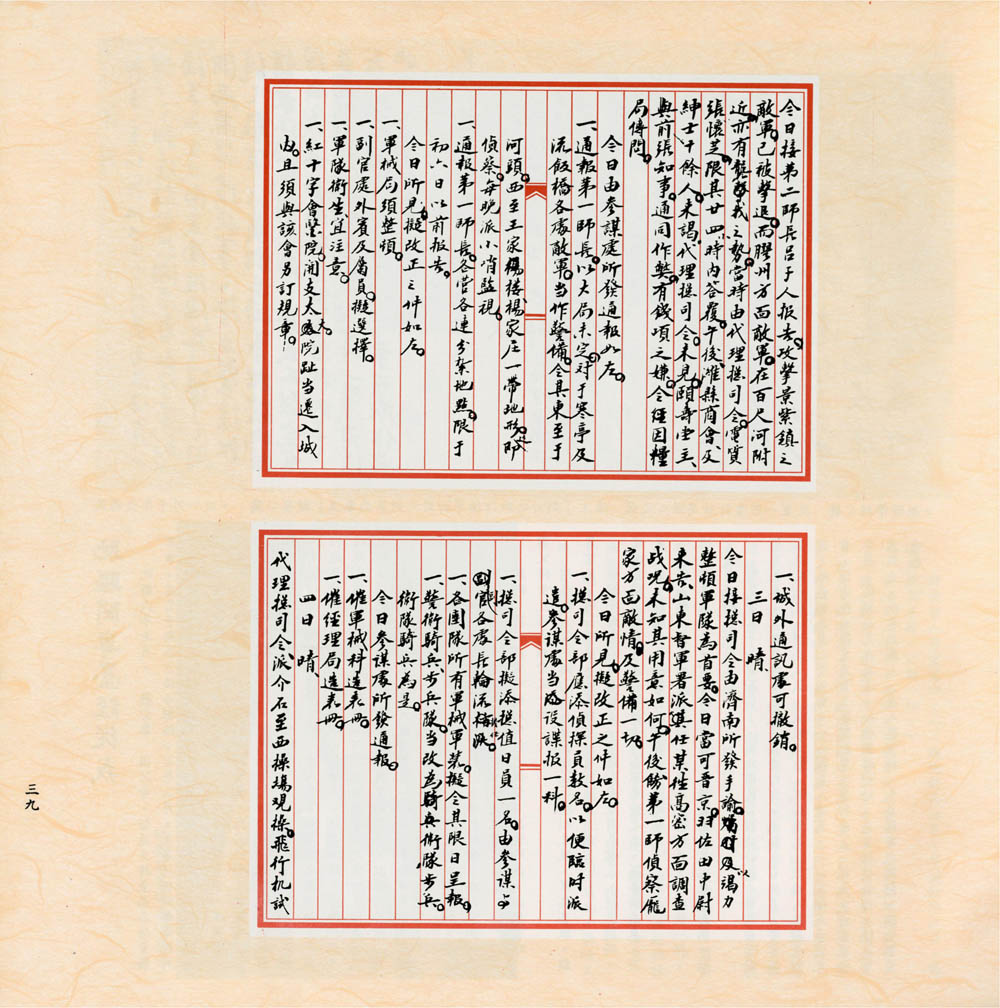 今日接第二師長呂子人报告。攻擊景芝鎮之
敵軍。已被擊退。而膠州方面敵軍。在百尺河附
近。亦有襲擊我之勢。當時由代理總司令。電質
張懷芝。限其廿四時内答覆。午後濰縣商會及
紳士十余人。來謁代理總司令。未見。頤壽堂主、
與前張知事。通同作弊。有錢項之嫌。令經因糧
局傳問。
今日由參謀處所發通報如左。
一、通報第一師長。以大局未定。对于寒亭及
流飯橋各處敵軍。当作警備。令其東至于
河頭。西至王家楊楼楊家庄一帶地形。即
偵察。每晚派小哨監視。
一、通報第一師長。各营各連分紮地點。限于
初六日以前报告。
今日所見。擬改正之件如左。
一、軍械局須整頓。
一、副官處外賓及属員。擬選擇。
一、軍隊衛生。宜注意。
一、紅十字會醫院。開支太大。院趾当遷入城
内。且須與該會另訂規章。
一、城外通訊處可撤銷。
三日 晴、
今日接總司令由濟南所發手諭。以竭力
整頓軍隊為首要。今日當可晋京。羽佐田中尉
來告。山東督軍署派其任某往高密方面調查
战况。未知其用意如何。午後飭第一師偵察龐
家方面敵情。及警備一切。
今日所見。擬改正之件如左。
一、總司令部應添偵探員数名。以便臨时派
遣。參謀處当设諜报一科。
一、總司令部擬添總值日員一名。由參謀与
副官各處長輪流派。
一、各團隊所有軍械軍装。擬令其限日呈報。
一、警衛騎兵、步兵隊。当改為騎兵衛隊。步兵
衛隊騎兵為是。
今日參謀處所發通報。
一、催軍械科造表冊。
一、催經理局造表冊。
四日 晴、
代理總司令派介石至西操場观操。飛行机試
三九